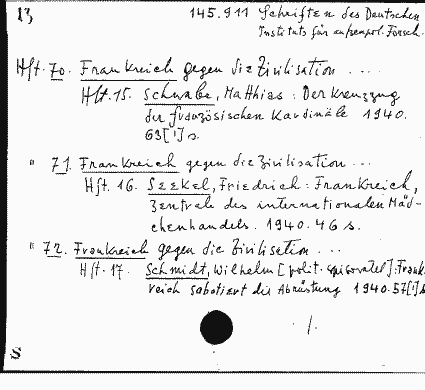 13 145.911 Schriften des Deutschen
Instituts für aussenpol. Forsch.
Hft. 70. Frankreich gegen die Zivilisation ....
Hft. 15. Schwabe, Matthias: Der Kreuzzug
der französischen Kardinäle 1940.
63[!] s.
" 71. Frankreich gegen die Zivilisation ...
Hft. 16. Seekel, Friedrich: Frankreich,
Zentrale des internationalen Mäd-
chenhandels. 1940. 46 s.
" 72. Frankreich gegen die Zivilisation ...
Hft. 17. Schmidt, Wilhelm [polit. ]: Frank-
reich sabotiert die Abrüstung 1940. 57[!] s
/.
S